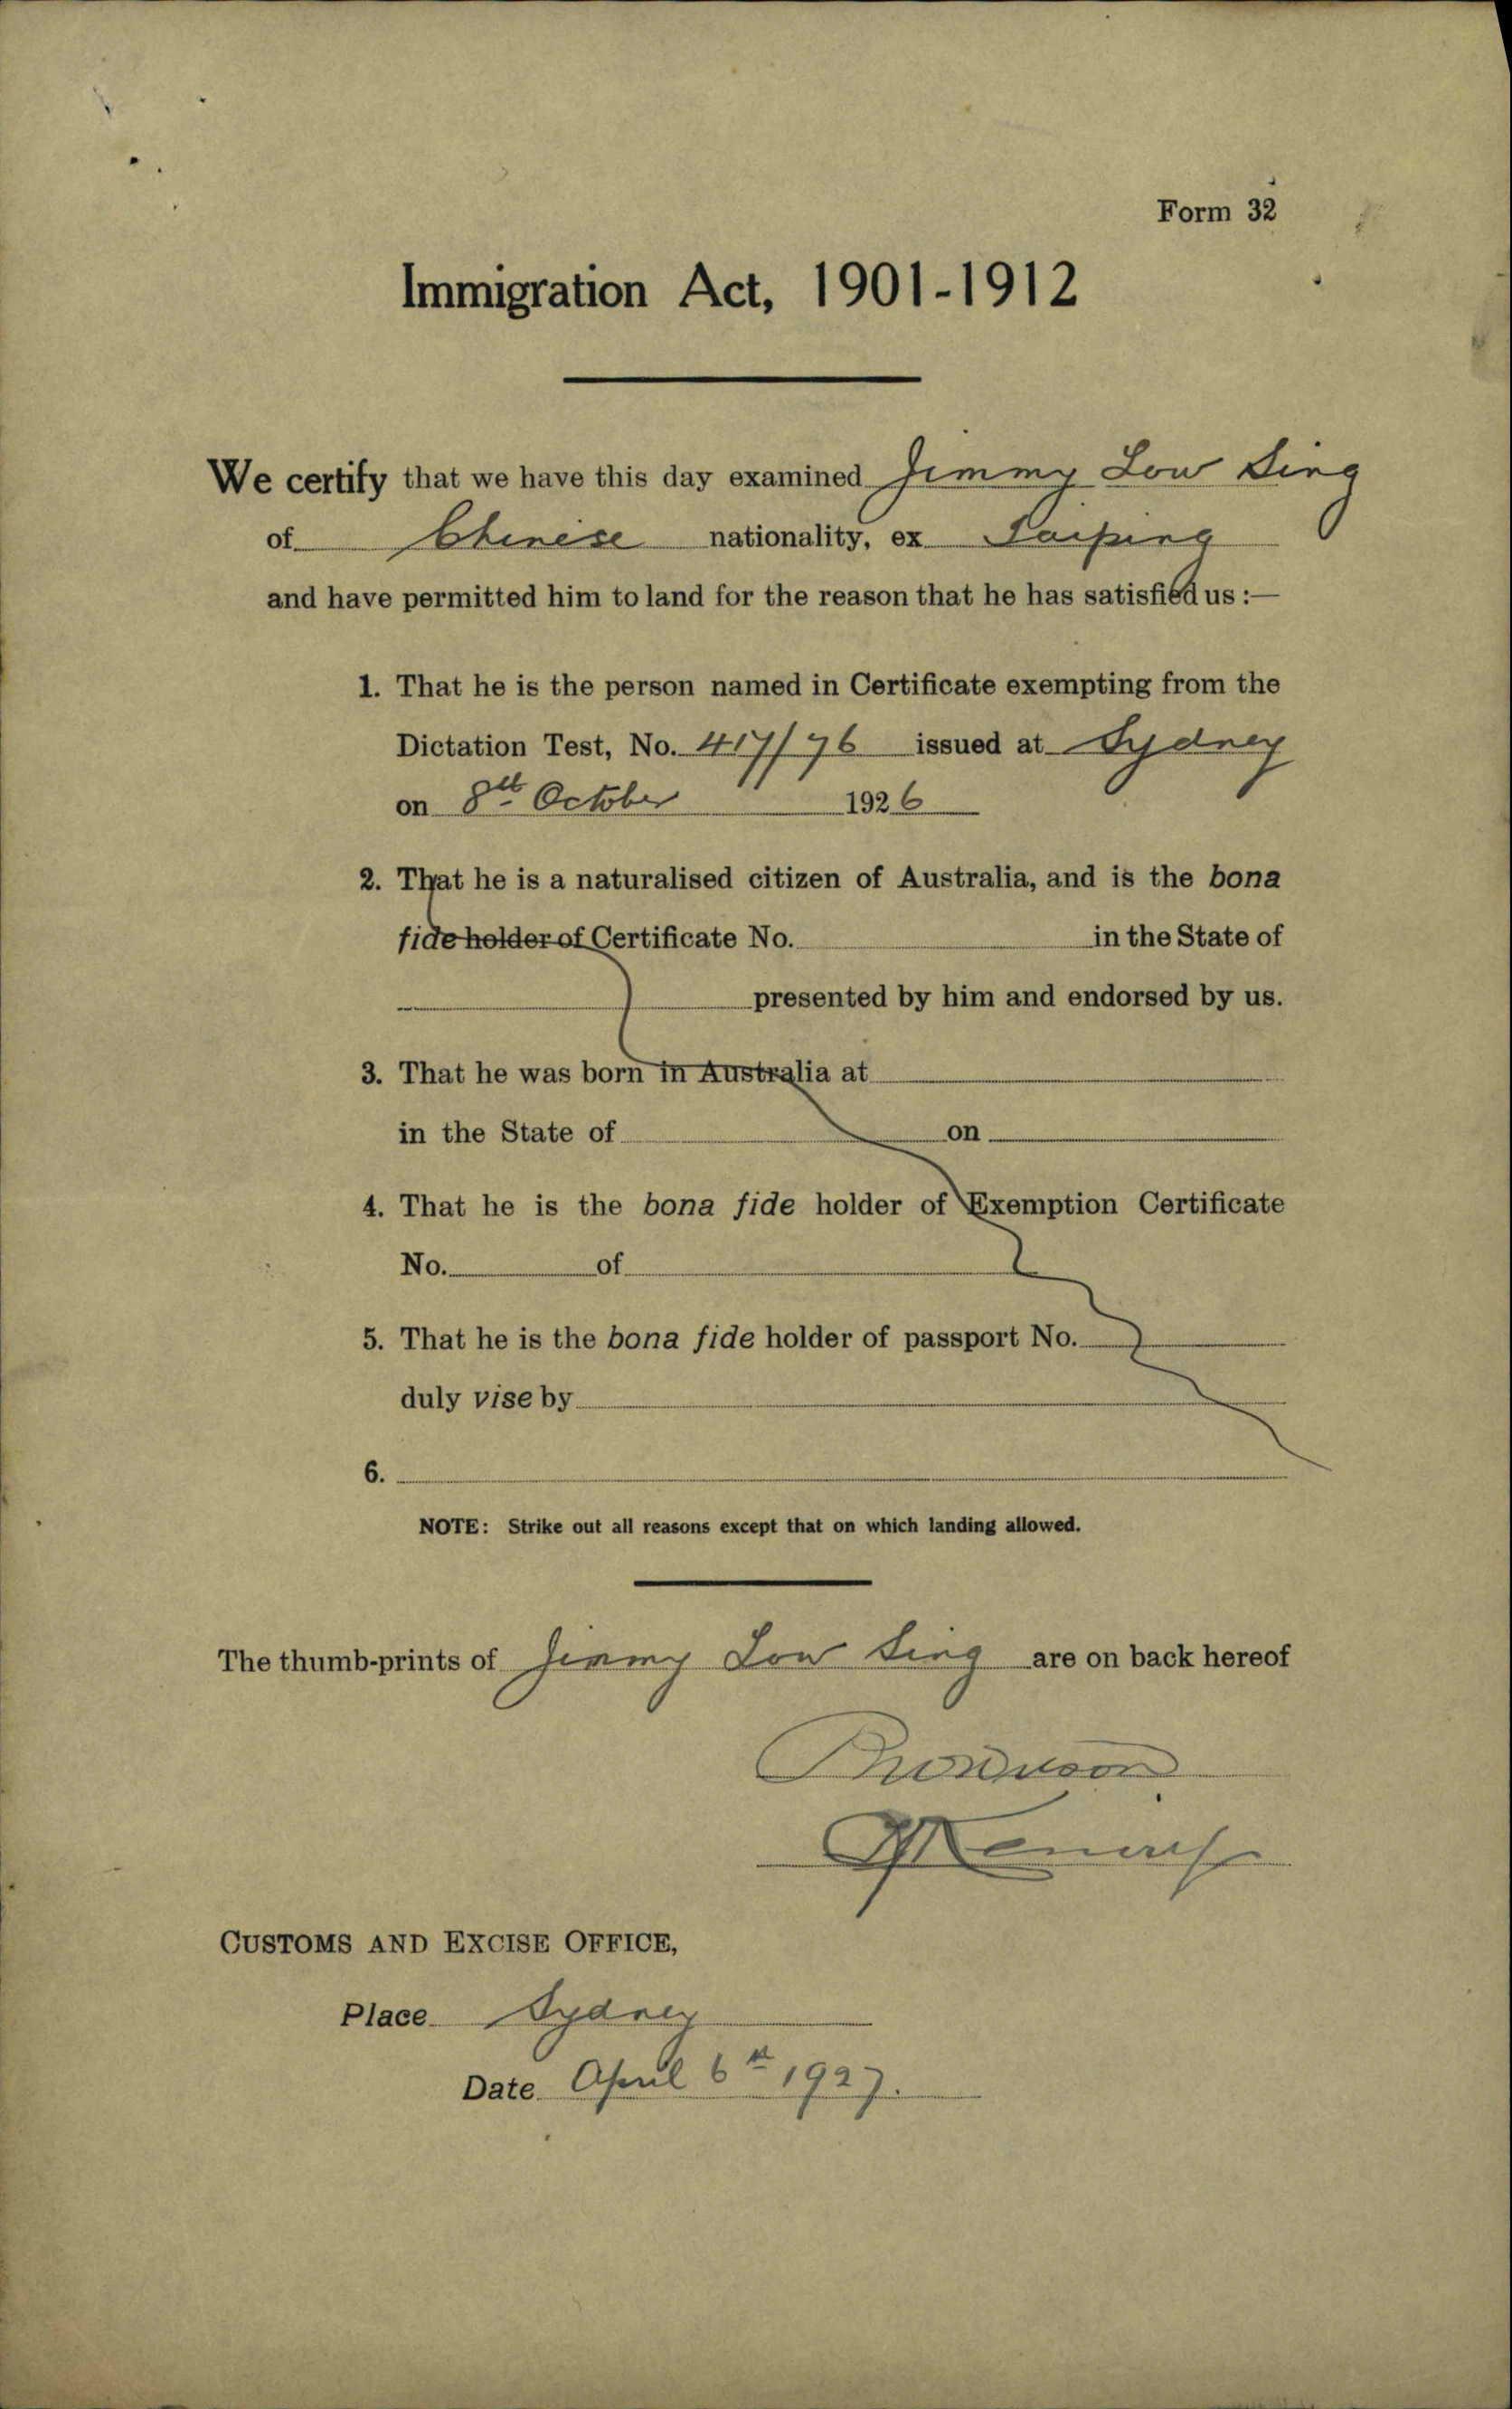 Form 32
Immigration Act, 1901-1912
We certify that we have this day examined Jimmy Low Sing
of Chinese nationality, ex Taiping
and have permitted him to land for the reason that he has satisfied us :—
1. That he is the person named in Certificate exempting from the
Dictation Test, No. 417/76 issued at Sydney
on 8th October 1926
2. That he is a naturalised citizen of Australia, and is the bona
fide holder of Certificate No. in the State of
presented by him and endorsed by us.
3. That he was born in Australia at
in the State of on
4. That he is the bona fide holder of Exemption Certificate
No. of
5. That he is the bona fide holder of passport No.
duly vise by
6.
NOTE: Strike out all reasons except that on which landing allowed.
The thumb-prints of Jimmy Low Sing are on back hereof
CUSTOMS AND EXCISE OFFICE,
Place Sydney
Date April 6th 1927.